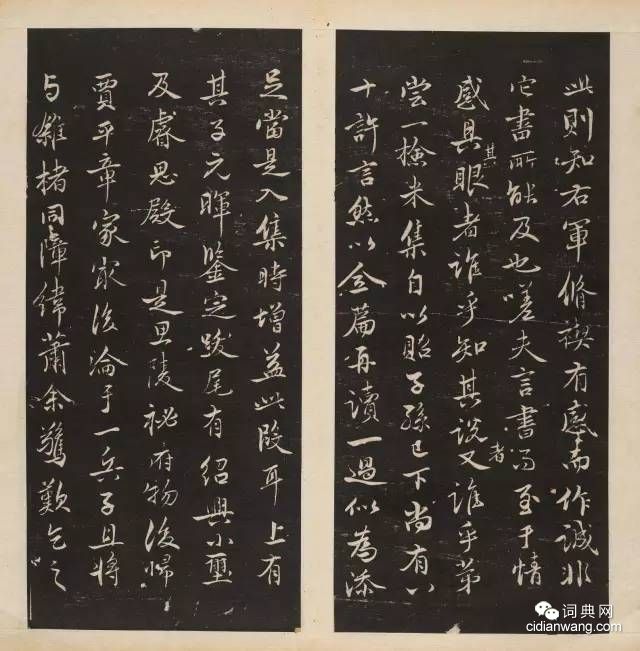 此則知右軍脩禊有感而作誠非
它書所能及也嗟夫言書而至于情
感具其眼者誰乎知其說者又誰乎第
嘗一撿米集自以貽子孫已下尚有八
十許言然以全篇再讀一過似為添
足當是入集時增益此段耳上有
其子元暉鑒定跋尾有紹興小璽
及睿思殿印是思陵祕府物後歸
賈平章家最後淪于一兵子且將
与雜楮同障緯蕭余驚歎乞之
词典网
cidianwang.com